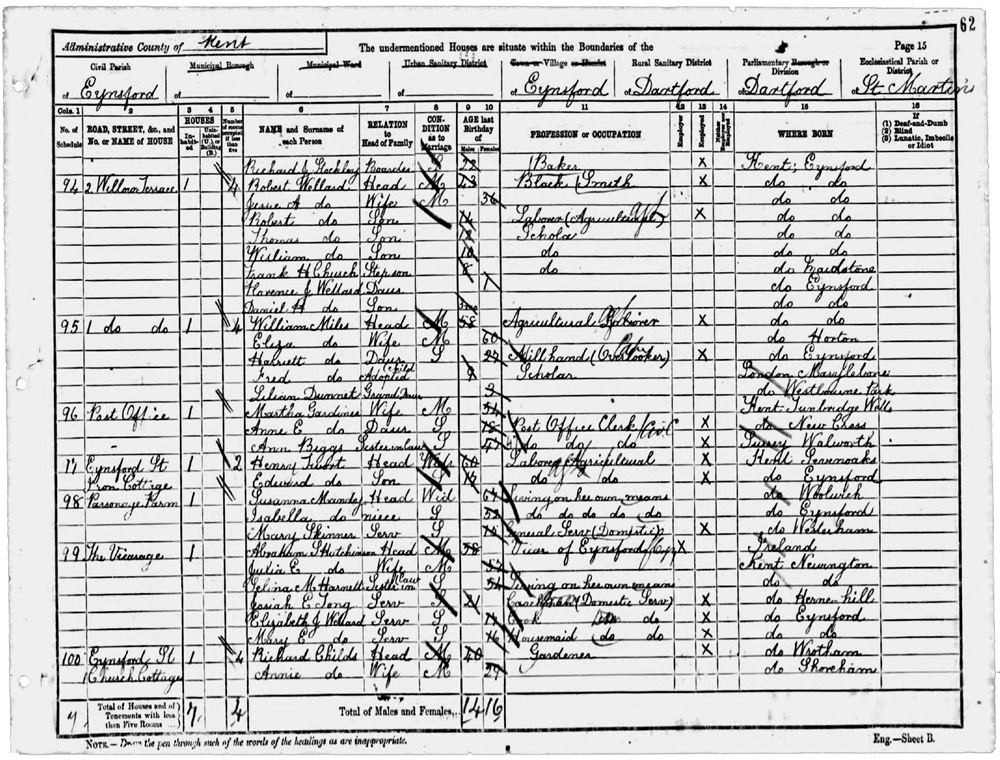 62
Administrative County of Kent The undermentioned Houses are situate within the Boundaries of the Page 15
Civil Parish Municipal Borough Municipal Ward Urban Sanitary District Town or Village or Hamlet Rural Sanitary District Parliamentary Borough or Division Ecclesiastical Parish or District
of Eynsford of of of of Eynsford of Dartford of Dartford of St. Martins
Cols. 1 2 3 4 5 6 7 8 9 10 11 12 13 14 15 16
No. of Schedule ROAD, STREET, &c., and No. or NAME of HOUSE HOUSES Inhabited Uninhabited (U.) or Building (B.) Number of rooms occupied if less than five NAME and Surname of each Person RELATION to Head of Family CONDITION as to Marriage AGE last Birthday of Males Females PROFESSION or OCCUPATION Employer Employed Neither WHERE BORN If (1) Deaf-and-Dumb (2) Blind (3) Lunatic, Imbecile or Idiot
Richard J Boarder S Baker X Kent; Eynsford
94 2 Willmor Terrace 1 4 Robert Wellard Head M 43 Black Smith X do do
Jesse A do Wife M 36 do do
Robert do Son 14 Laborer (Agricultural) X do do
Thomas do Son 12 Scholar do do
William do Son 10 do do do
Frank H Church Stepson 8 do do Maidstone
Florence J Wellard Daur 1 do Eynsford
Daniel H do Son do do
95 1 do do 1 4 William Miles Head M 58 Agricultural Laborer X do do
Eliza do Wife M 60 do Horton
Harriett do Daur S 22 Mill hand (Over Looker) X do Eynsford
Fred do Adopted Child 9 Scholar London Marylebone
Lilian Dunnet Grand Daur 3 do Westbourne Park
96 Post Office 1 Martha Gardiner Wife M 54 Kent Tunbridge Wells
Anne E do Daur S 18 Post Office Clerk Civil X do New Cross
Ann Biggs Sister in law S 47 do do do X Surrey Walworth
17 Eynsford St 1 2 Henry Head 60 Laborer Agricultural X Kent Sevenoaks
Iron Cottage Edward do Son S do do X do Eynsford
98 Parsonage Farm 1 Susanna Mandy Head Wid 64 Living on her own means do Woolwich
Isabella do niece S 32 do do do do do do Eynsford
Mary Skinner Serv S General Serv (Domestic) X do Westerham
99 The Vicarage 1 Abraham S Hutchinson Head M 58 Vicar of Eynsford X Ireland
Julia E do Wife M 52 Kent Newington
Selina M Harnett Sister in law S 54 Living on her own means do do
Josiah E Long Serv S 21 Coachman (Domestic Serv) X do Herne-hill
Elizabeth J Wellard Serv S Cook do do X do Eynsford
Mary E do Serv S 16 Housemaid (do do X do do
100 Eynsford St 1 4 Richard Childs Head M 40 Gardener X do Wrotham
1 Church Cottage Annie do Wife M 27 do Shoreham
7 Total of Houses and of Tenements with less than Five Rooms 7 4 Total of Males and Females... 14 16
NOTE.—Draw the pen through such of the words of the headings as are inappropriate. Eng.—Sheet B.